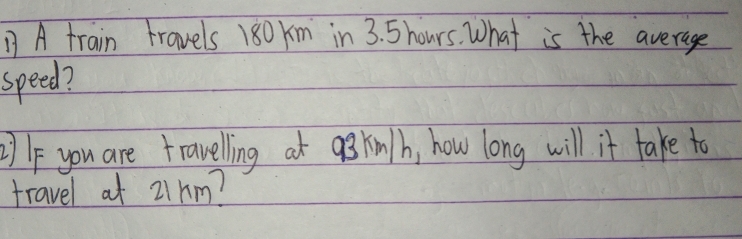 1) A train travels 180 km in 3.5 hours. What is the average
speed?
2) IF you are travelling at 93 km/h, how long will it take to
travel at 21 km?